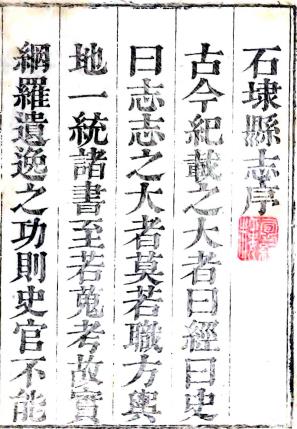 石埭縣志序
古今紀載之大者曰經曰史
曰志志之大者莫若職方輿
地一統諸書至若蒐考故實
網羅遺逸之功則史官不能